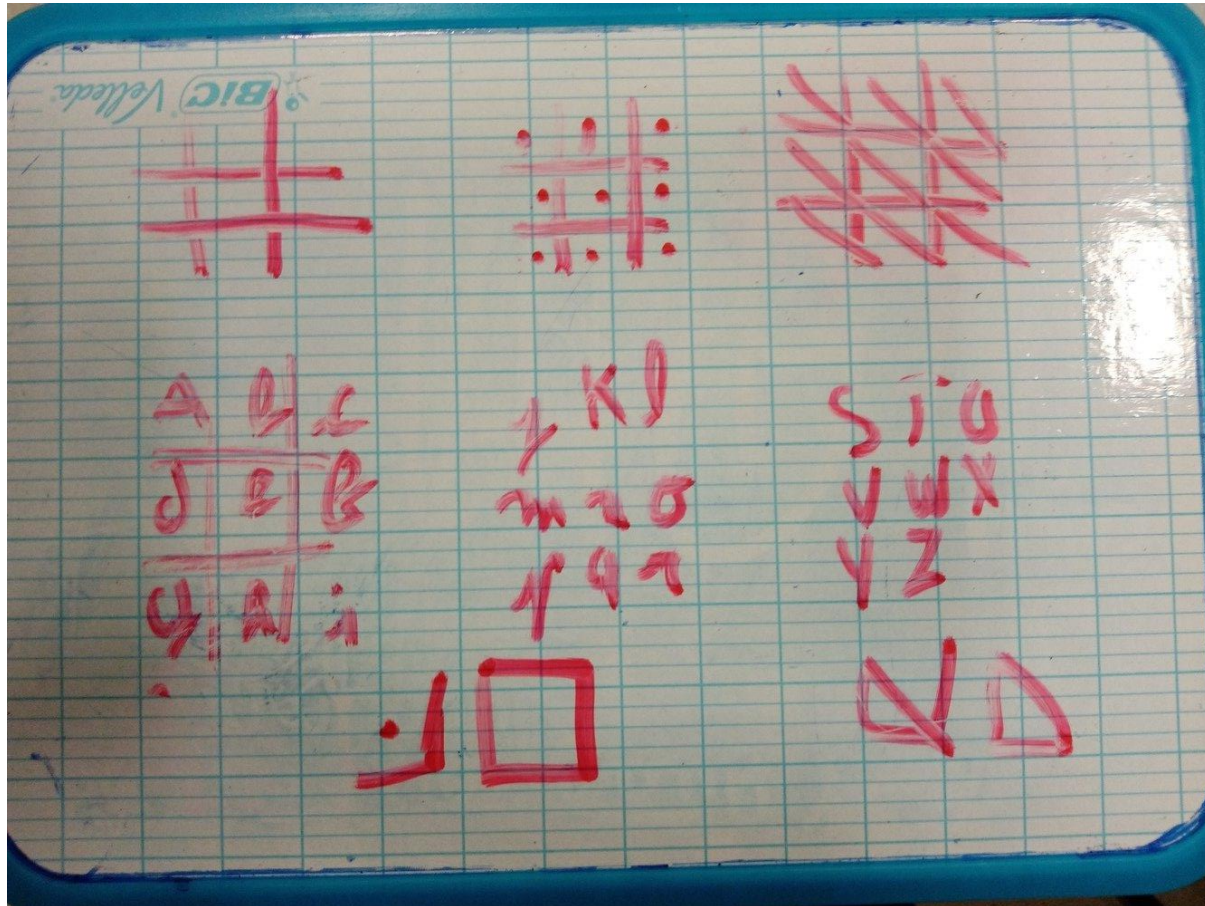 BIC Velleda
A b c
d e f
g h i
j K l
m n o
p q r
S T U
V W X
Y Z